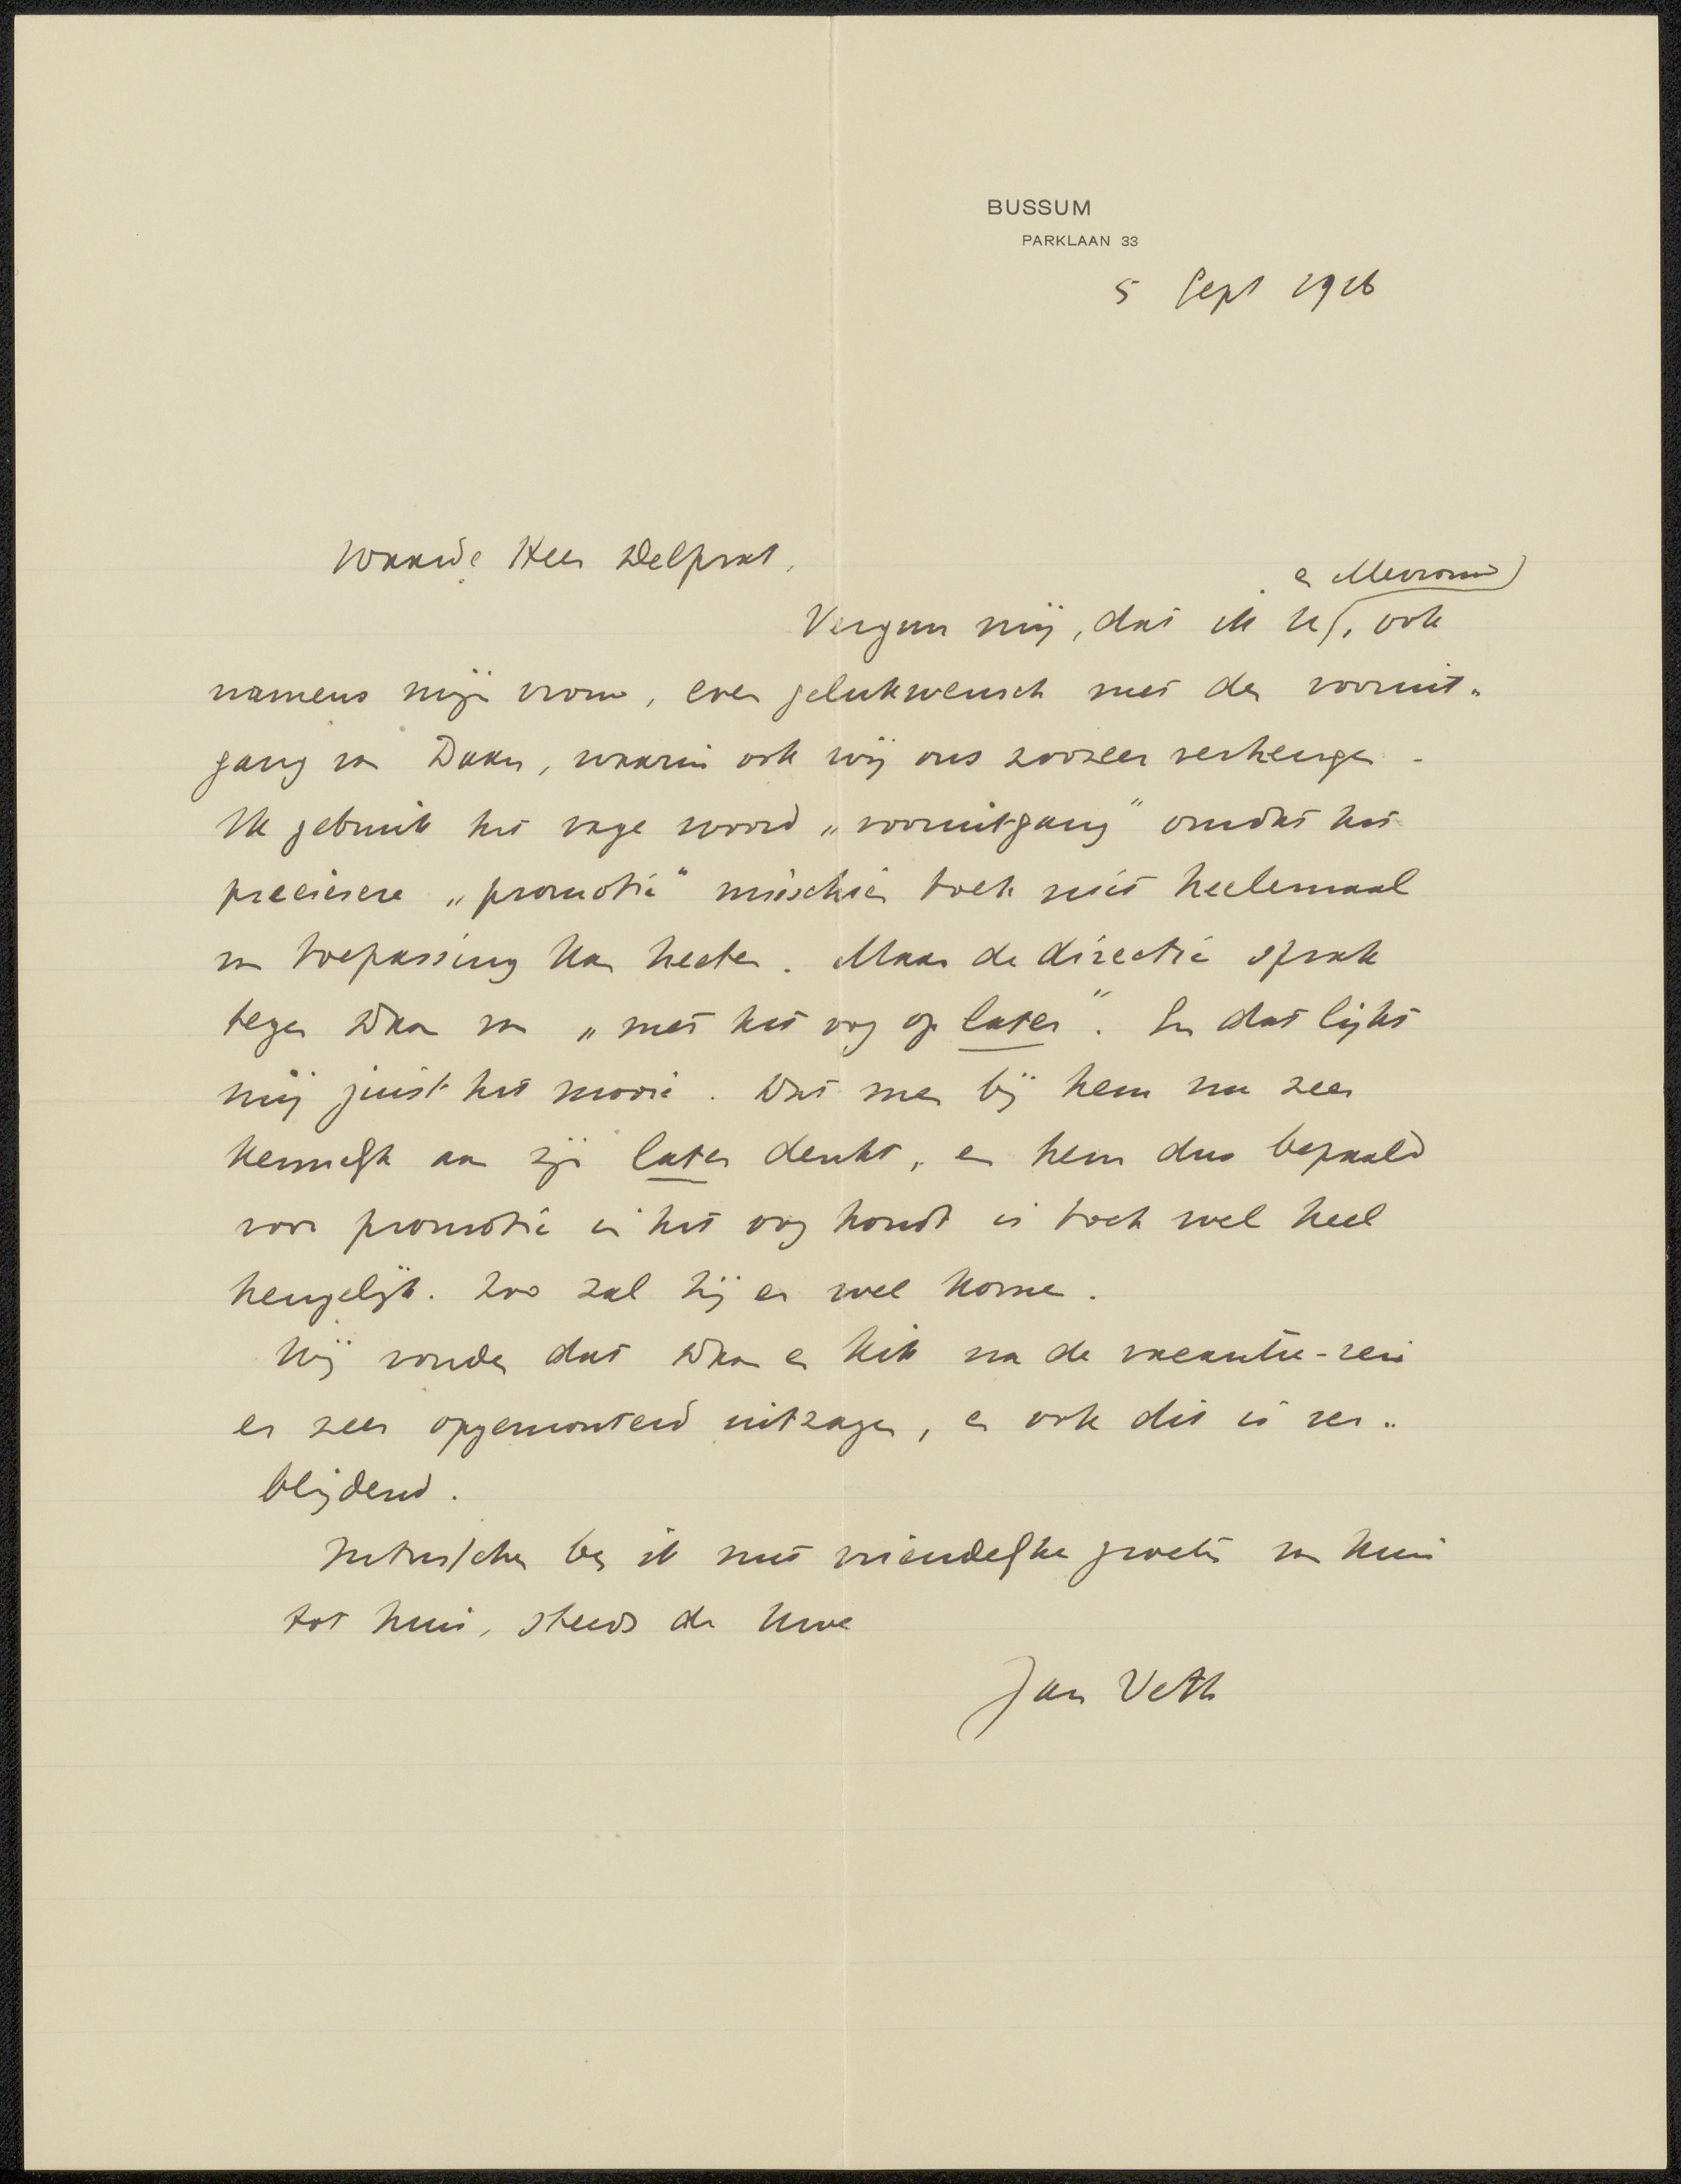 BUSSUM
PARKLAAN 33
5 Sept 1916
Waarde Heer Delprat,
en Mevrouw
Vergun mij, dat ik U, ook
namens mijn vrouw, even gelukwensch met den vooruit„
gang van Daan, waarin ook wij ons zoozeer verheugen.
Ik gebruik het vage woord „vooruitgang" omdat het
preciesere „promotie" misschien toch niet heelemaal
van toepassing kan heeten. Maar de directie sprak
tegen Daan van „met het oog op later". En dat lijkt
mij juist het mooie. Dat men bij hem nu zeer
kennelijk aan zijn later denkt, en hem dus bepaald
voor promotie in het oog houdt is toch wel heel
heugelijk. Zoo zal hij er wel komen.
Wij vonden dat Daan en Kik na de vacantie-reis
er zeer opgemonterd uitzagen, en ook dit is ver„
blijdend.
Intusschen ben ik met vriendelijke groeten van huis
tot huis, steeds de Uwe
Jan Veth